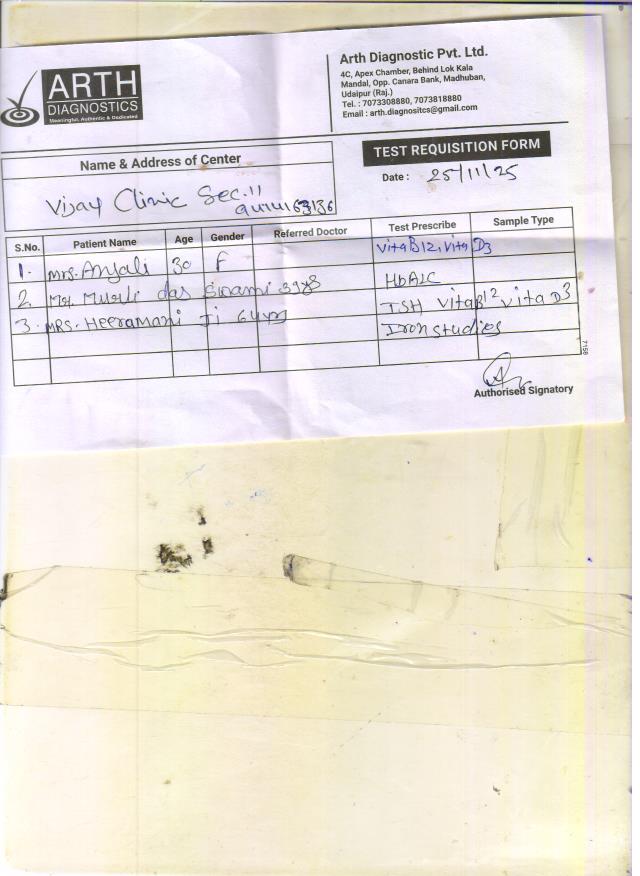 ARTH
DIAGNOSTICS
Meaningful, Authentic & Dedicated
Arth Diagnostic Pvt. Ltd.
4C, Apex Chamber, Behind Lok Kala
Mandal, Opp. Canara Bank, Madhuban,
Udaipur (Raj.)
Tel. : 7073308880, 7073818880
Email : arth.diagnositcs@gmail.com
TEST REQUISITION FORM
Date : 25/11/25
Name & Address of Center
Vijay Clinic Sec.11
S.No. Patient Name Age Gender Referred Doctor Test Prescribe Sample Type
1. Mrs. Anjali 30 F VitaB12, Vita D3
2. Murli das Swami HbA1C
3. MRS. Heeramani Ji 64yrs TSH VitaB12 Vita D3
Iron studies
7158
Authorised Signatory